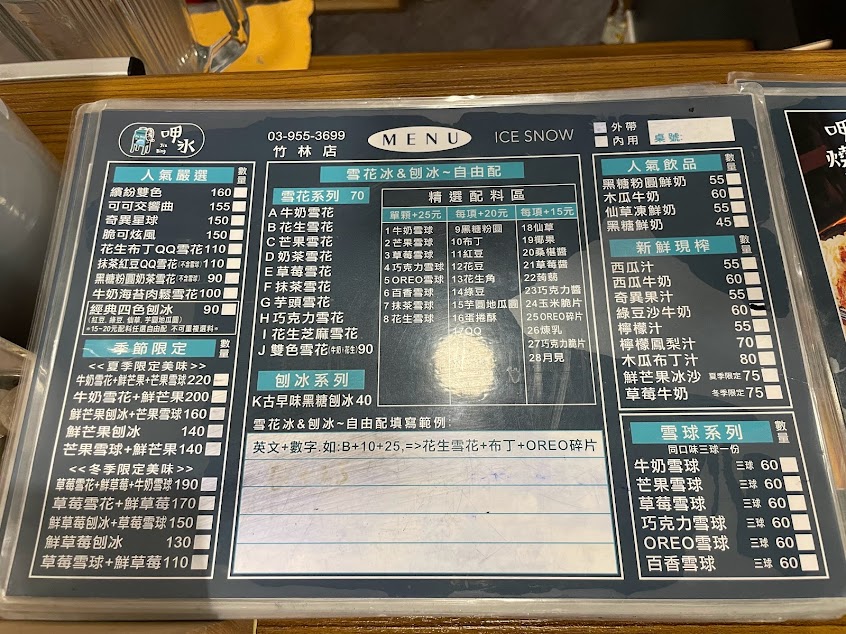 呷冰
Jia Bing
03-955-3699
竹林店
MENU
ICE SNOW
外帶
內用
桌號:
人氣嚴選 數量
繽紛雙色 160
可可交響曲 155
奇異星球 150
脆可炫風 150
花生布丁QQ雪花 110
抹茶紅豆QQ雪花(不含雪球) 110
黑糖粉圓奶茶雪花(不含雪球) 90
牛奶海苔肉鬆雪花 100
經典四色刨冰 90
(紅豆.綠豆.仙草.芋圓地瓜圓)
*15~20元配料任選自由配 不可重複選料*
季節限定 數量
<<夏季限定美味>>
牛奶雪花+鮮芒果+芒果雪球 220
牛奶雪花+鮮芒果 200
鮮芒果刨冰+芒果雪球 160
鮮芒果刨冰 140
芒果雪球+鮮芒果 140
<<冬季限定美味>>
草莓雪花+鮮草莓+牛奶雪球 190
草莓雪花+鮮草莓 170
鮮草莓刨冰+草莓雪球 150
鮮草莓刨冰 130
草莓雪球+鮮草莓 110
雪花冰&刨冰~自由配
雪花系列 70
A 牛奶雪花
B 花生雪花
C 芒果雪花
D 奶茶雪花
E 草莓雪花
F 抹茶雪花
G 芋頭雪花
H 巧克力雪花
I 花生芝麻雪花
J 雙色雪花(牛奶+花生) 90
刨冰系列
K 古早味黑糖刨冰 40
精選配料區
單顆+25元
1 牛奶雪球
2 芒果雪球
3 草莓雪球
4 巧克力雪球
5 OREO雪球
6 百香雪球
7 抹茶雪球
8 花生雪球
每項+20元
9 黑糖粉圓
10 布丁
11 紅豆
12 花豆
13 花生角
14 綠豆
15 芋圓地瓜圓
16 蛋捲酥
QQ
每項+15元
18 仙草
19 椰果
20 桑椹醬
21 草莓醬
22 蒟蒻
23 巧克力醬
24 玉米脆片
25 OREO碎片
26 煉乳
27 巧克力脆片
28 月見
雪花冰&刨冰~自由配填寫範例:
英文+數字.如:B+10+25,=>花生雪花+布丁+OREO碎片
人氣飲品 數量
黑糖粉圓鮮奶 55
木瓜牛奶 60
仙草凍鮮奶 55
黑糖鮮奶 45
新鮮現榨 數量
西瓜汁 55
西瓜牛奶 60
奇異果汁 55
綠豆沙牛奶 60
檸檬汁 55
檸檬鳳梨汁 70
木瓜布丁汁 80
鮮芒果冰沙 夏季限定 75
草莓牛奶 冬季限定 75
雪球系列 數量
同口味三球一份
牛奶雪球 三球 60
芒果雪球 三球 60
草莓雪球 三球 60
巧克力雪球 三球 60
OREO雪球 三球 60
百香雪球 三球 60
呷
燒